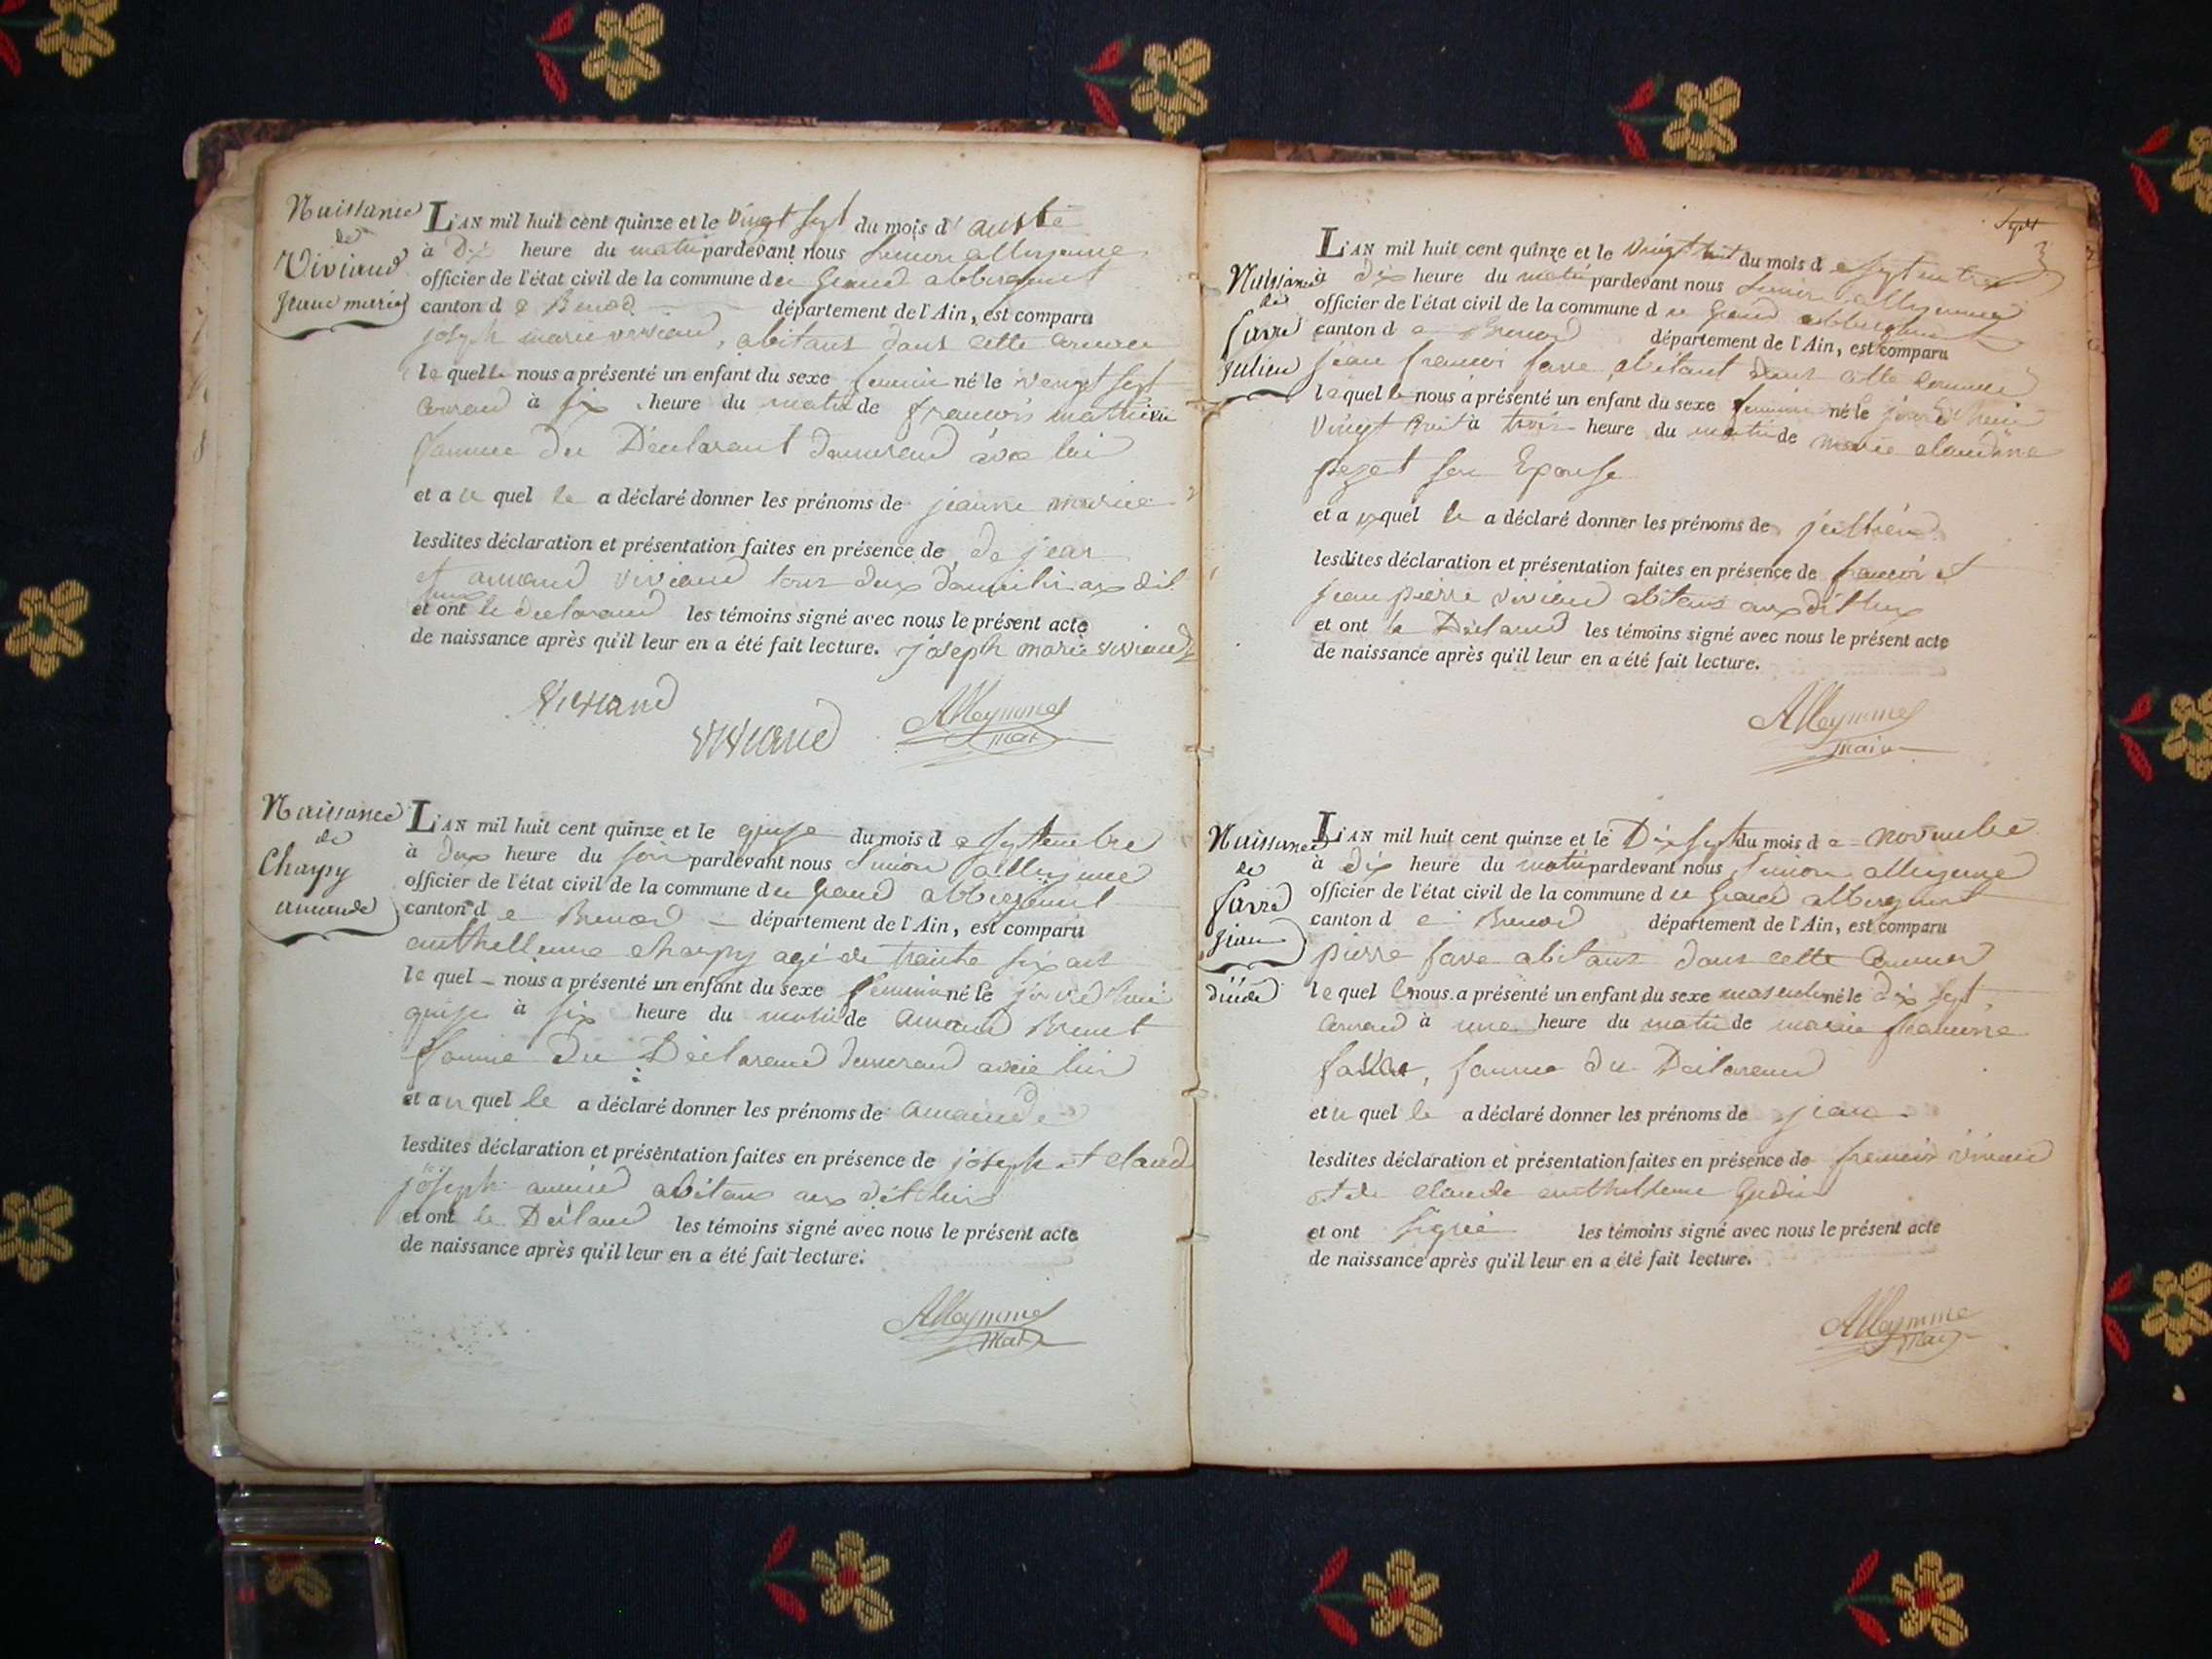 Naissance
de
Viviand
jeane marie
L'AN mil huit cent quinze et le vingt sept du mois d'
à Dix heure du matin pardevant nous Simon alleymme
officier de l'état civil de la commune du Grand abbergement
canton d e Brenod département de l'Ain, est comparu
joseph marie viviand, abitant dans cette
le quel le nous a présenté un enfant du sexe feminin né le vingt sept
courand à six heure du matin de francois mathieu
famme du Déclarant demurand avec lui
et a u quel le a déclaré donner les prénoms de jeanne marie
lesdites déclaration et présentation faites en présence de de jean
et amand viviand tous deux aux dit
lieux
et ont le declarand les témoins signé avec nous le présent acte
de naissance après qu'il leur en a été fait lecture. joseph marie viviand
viviand
viviand
Alleymme
Mai
Naissance
de
Charpy
amande
L'AN mil huit cent quinze et le quise du mois d e septembre
à deux heure du soir pardevant nous Simon alleymme
officier de l'état civil de la commune du Grand abbergement
canton d e Brenod département de l'Ain, est comparu
anthelleme charpy agé de trante six ans
le quel nous a présenté un enfant du sexe feminin né le jourd'hui
quise à six heure du matin de amand Brunet
famme du Déclarand demurand avec lui
et a u quel le a déclaré donner les prénoms de amande
lesdites déclaration et présentation faites en présence de joseph et claud
joseph abitans aux dit lieu
et ont le Déclarand les témoins signé avec nous le présent acte
de naissance après qu'il leur en a été fait lecture.
Alleymme
Mai
Sept
3
Naissance
de
favre
julien
L'AN mil huit cent quinze et le vingt huit du mois d e septembre
à dix heure du matin pardevant nous Simon alleymme
officier de l'état civil de la commune du Grand abbergement
canton d e Brenod département de l'Ain, est comparu
jean francoi favre abitant dans cette commune
le quel le nous a présenté un enfant du sexe feminin né le jourd'huis
vingt huit à trois heure du matin de marie claudine
pezet son Epouse
et a u quel le a déclaré donner les prénoms de jullien
lesdites déclaration et présentation faites en présence de francoi et
jean pierre viviand abitans aux dit lieux
et ont le Déclarand les témoins signé avec nous le présent acte
de naissance après qu'il leur en a été fait lecture.
Alleymme
Maire
Naissance
de
favre
jean
L'AN mil huit cent quinze et le Dix sept du mois d e novembre
à dix heure du matin pardevant nous Simon alleymme
officier de l'état civil de la commune du Grand abbergement
canton d e Brenod département de l'Ain, est comparu
pierre favre abitant dans cette
le quel le nous a présenté un enfant du sexe masculin né le dix sept
courand à une heure du matin de marie
famme du Déclarand
et u quel le a déclaré donner les prénoms de jean
lesdites déclaration et présentation faites en présence de francois viviand
et de claude anthelleme
et ont signé les témoins signé avec nous le présent acte
de naissance après qu'il leur en a été fait lecture.
Alleymme
Mai